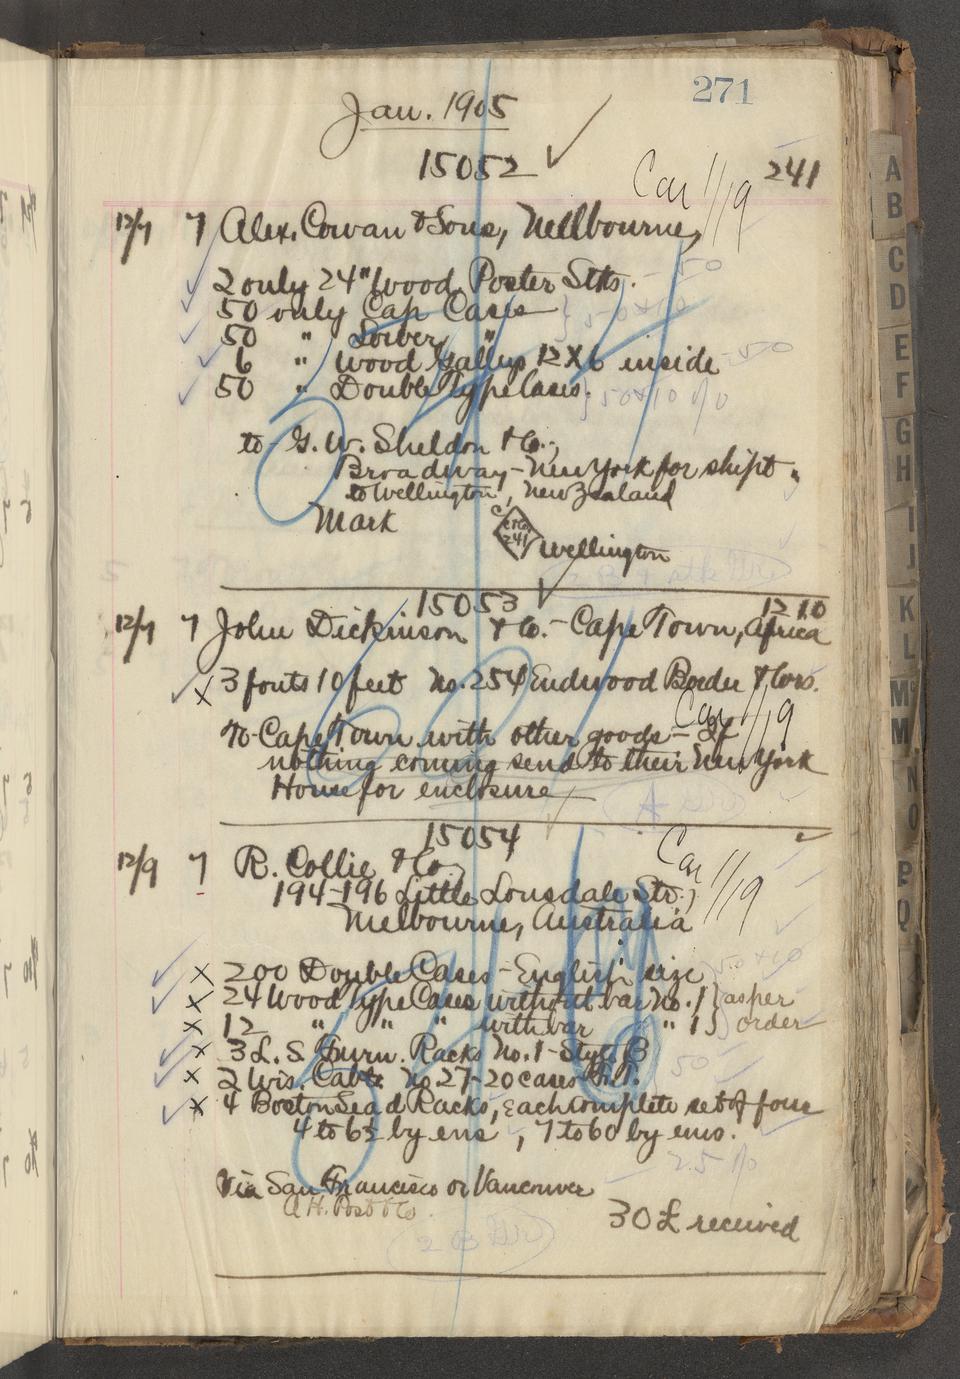 271
Jan. 1905
15052
Car 1/19
241
12/7 7 Alex. Cowan & Sons, Mellbourne,
2 only 24" Wood Poster Stks. - 50
50 only Cap Cases
50 " Lower "
6 " Wood Gallys 12 X 6 inside - 50
50 " Double Type Cases.
to - G. W. Sheldon & Co.,
Broadway - New York for shipt.
to Wellington, New Zealand
Mark
C & Co. 241
Wellington
15053
1210
12/7 7 John Dickinson & Co. - Cape Town, Africa
3 fonts 10 feet No. 254 Endwood Border & Cors.
Car 1/19
To Cape Town with other goods - If
nothing coming send to their New York
House for enclosure
15054
Car 1/19
12/9 7 R. Collie & Co.,
194-196 Little Lonsdale Str.,
Melbourne, Australia
200 Double Cases - English size
24 Wood Type Cases without bar No. 1 } as per
12 " " " with bar " 1 } order
3 L. S. Furn. Racks No. 1 - Style B
2 Wis. Cabts. No. 27 - 20 cases
50
4 Boston Lead Racks, each complete set of four
4 to 63 by ens, 7 to 60 by ems.
25 %
Via San Francisco or Vancouver
A. H. Post & Co.
30 £ received
A B C D E F G H I J K L M M N O P Q